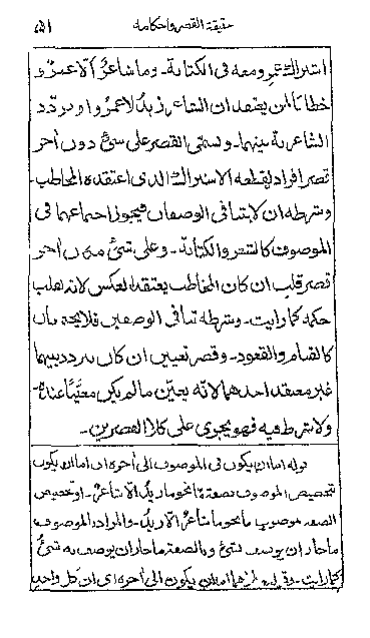 حقيقة القصر واحكامه ١٥١
اشتراك شعر ومعه فى الكتابة۔ وما شاعر الا عمرو
خطابا لمن يعتقد ان الشاعر زيد لا عمرو او يردد
الشاعرية بينهما۔ ويسمى القصر على شئ دون اخر
قصر افراد لقطعه الاشتراك الذى اعتقده المخاطب۔
وشرطه ان لا يتنافى الوصفان فيجوز اجتماعهما فى
الموصوف كالشعر والكتابة۔ وعلى شئ مكان اخر
قصر قلب ان كان المخاطب يعتقد العكس لانه لقلب
حكمه كما رايت۔ وشرطه تنافى الوصفين فلا يجتمعان
كالقيام والقعود۔ وقصر تعيين ان كان يردد بينهما
غير معتقد احدهما لانه يعين ما لم يكن معينا عنده۔
ولا شرط فيه فهو يجرى على كلا القصرين۔
قوله اما ان يكون فى الموصوف الى اخره اى اما ان يكون
لتخصيص الموصوف بصفة نحو ما زيد الا شاعر۔ او تخصيص
الصفة بموصوف نحو ما شاعر الا زيد۔ والمراد بالموصوف
ما جاز ان يوصف بشئ وبالصفة ما جاز ان يوصف به شئ
كما رايت۔ وقوله يكون الى اخره اى ان كل واحد